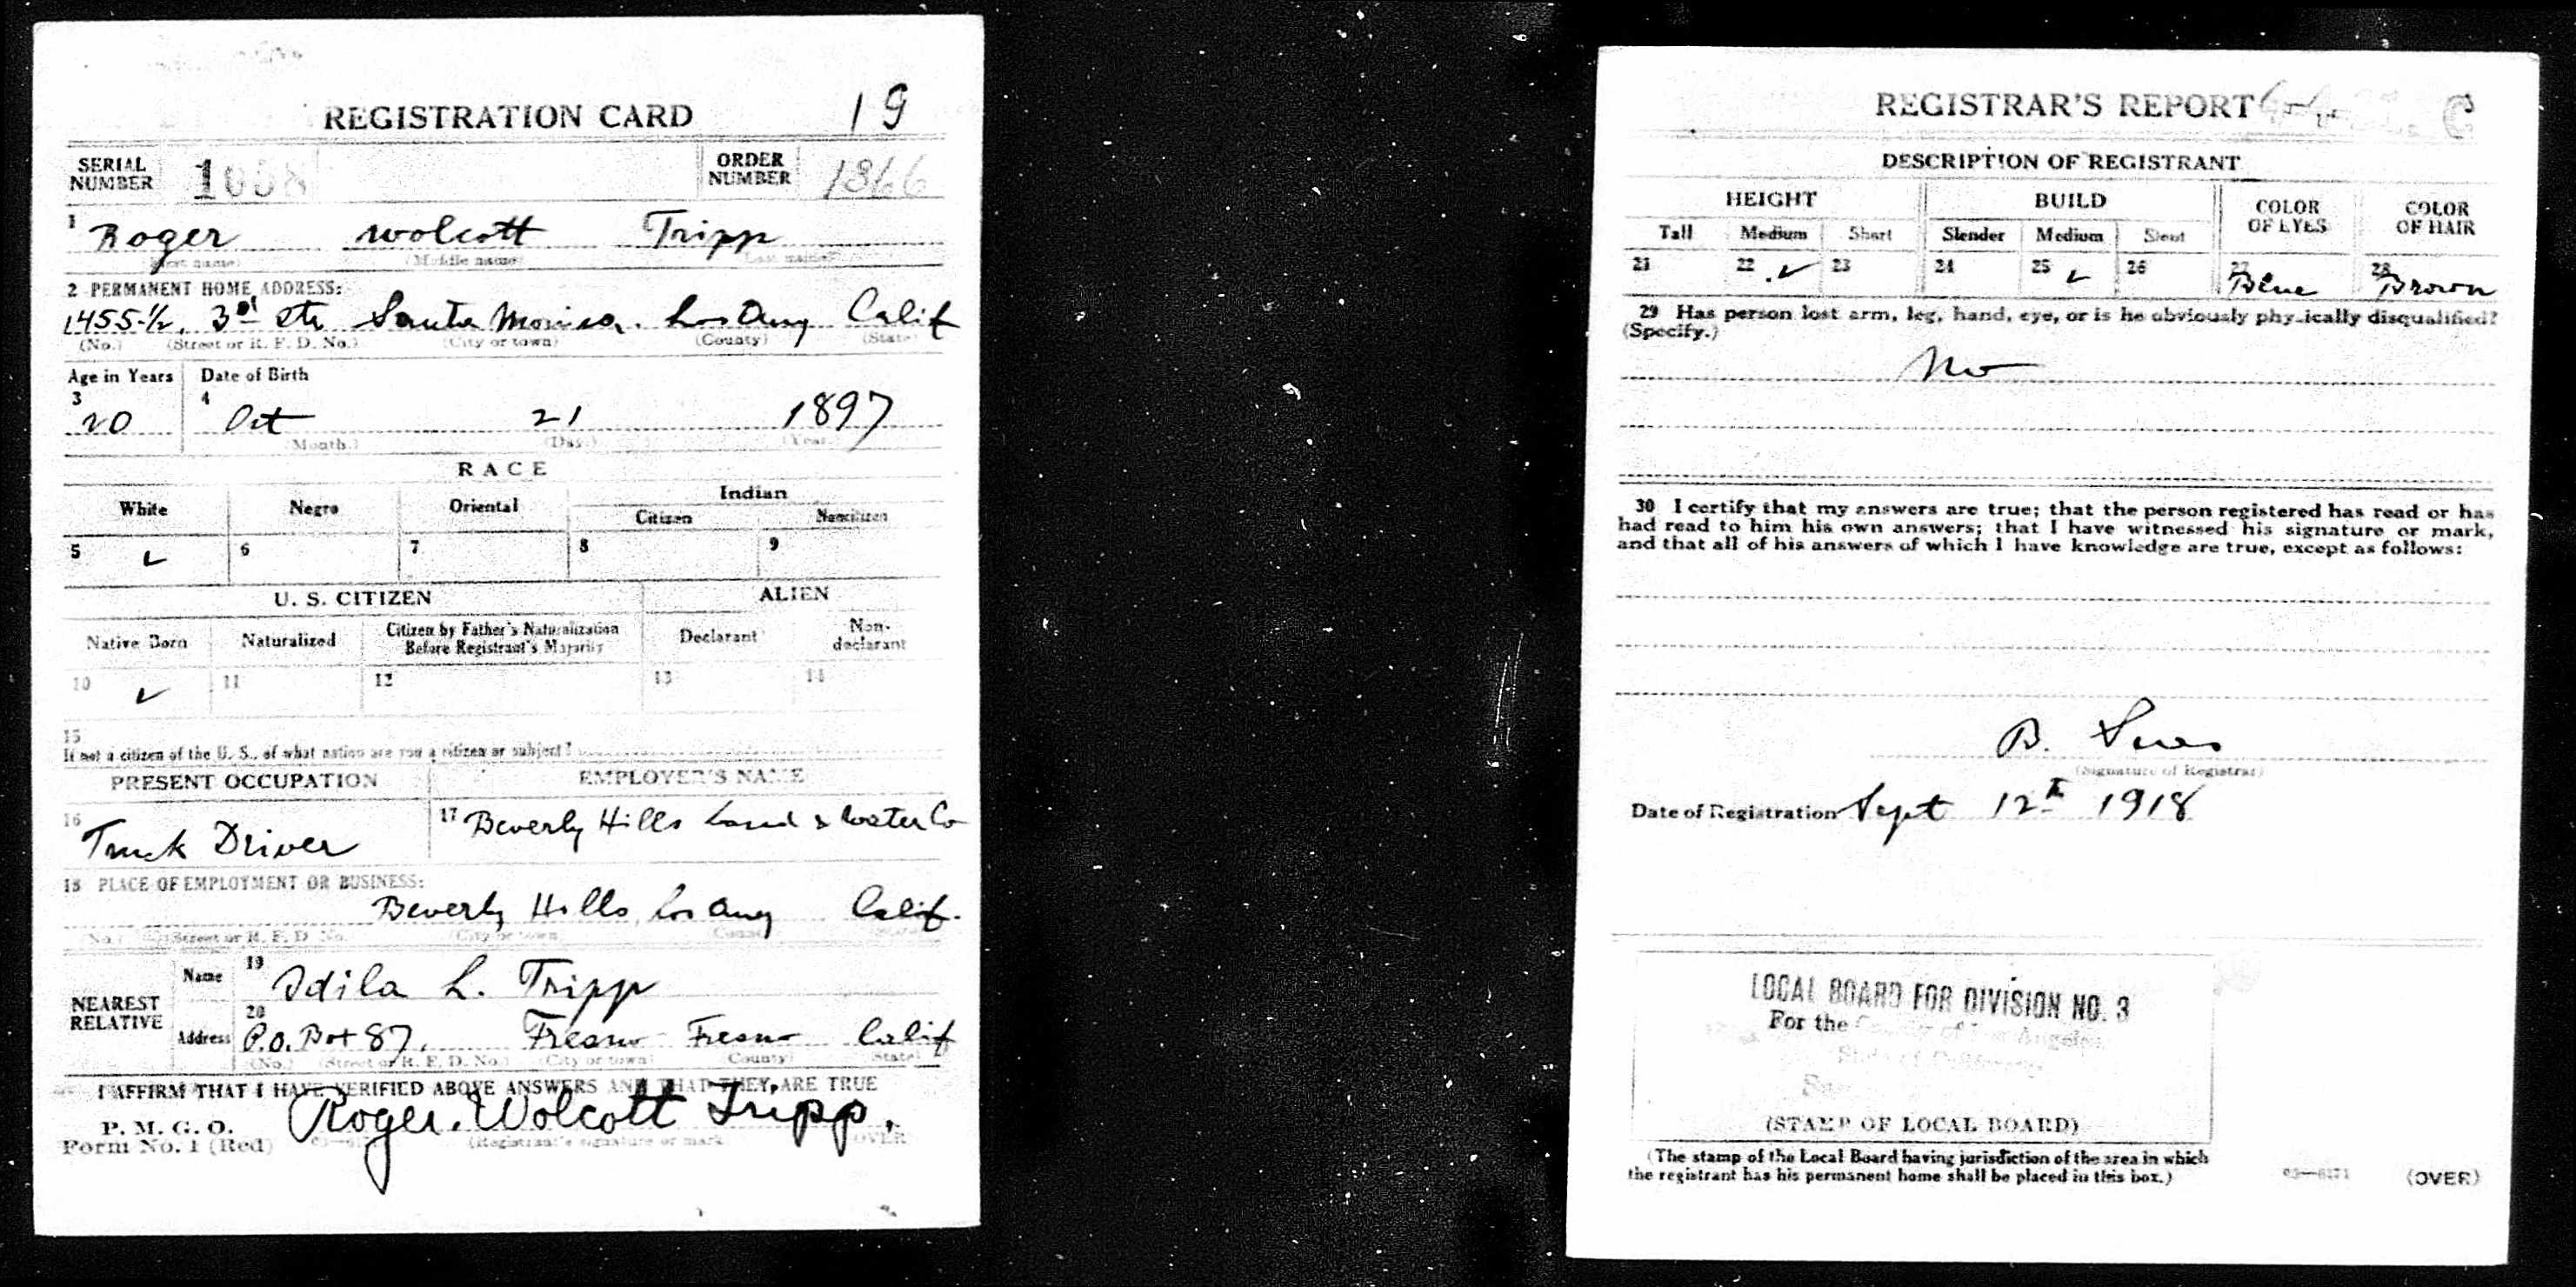 REGISTRATION CARD 19
SERIAL NUMBER ORDER NUMBER 1366
1 Roger wolcott Tripp
(First name) (Middle name) (Last name)
2 PERMANENT HOME ADDRESS:
1455-½, 3rd Str Santa Monica. Los Ang Calif
(No.) (Street or R. F. D. No.) (City or town) (County) (State)
Age in Years Date of Birth
3 20 4 Oct 21 1897
(Month.) (Day.) (Year.)
RACE
White Negro Oriental Indian
Citizen Noncitizen
5 ✓ 6 7 8 9
U. S. CITIZEN ALIEN
Native Born Naturalized Citizen by Father's Naturalization Before Registrant's Majority Declarant Non-declarant
10 ✓ 11 12 13 14
15
If not a citizen of the U. S., of what nation are you a citizen or subject?
PRESENT OCCUPATION EMPLOYER'S NAME
16 Truck Driver 17 Beverly Hills Land & Water Co
18 PLACE OF EMPLOYMENT OR BUSINESS:
Beverly Hills, Los Ang Calif.
(No.) (Street or R. F. D. No.) (City or town) (County) (State)
NEAREST RELATIVE
Name 19 Idila L. Tripp
Address 20 P.O. Box 87, Fresno Fresno Calif
(No.) (Street or R. F. D. No.) (City or town) (County) (State)
I AFFIRM THAT I HAVE VERIFIED ABOVE ANSWERS AND THAT THEY ARE TRUE
P. M. G. O.
Form No. 1 (Red) Roger. Wolcott Tripp.
(Registrant's signature or mark) (OVER)
REGISTRAR'S REPORT
DESCRIPTION OF REGISTRANT
HEIGHT BUILD COLOR OF EYES COLOR OF HAIR
Tall Medium Short Slender Medium Stout
21 22 ✓ 23 24 25 ✓ 26 27 Blue 28 Brown
29 Has person lost arm, leg, hand, eye, or is he obviously physically disqualified?
(Specify.)
No
30 I certify that my answers are true; that the person registered has read or has
had read to him his own answers; that I have witnessed his signature or mark,
and that all of his answers of which I have knowledge are true, except as follows:
B.
(Signature of Registrar)
Date of Registration Sept 12th 1918
LOCAL BOARD FOR DIVISION NO. 3
For the County of Los Angeles
State of California
(STAMP OF LOCAL BOARD)
(The stamp of the Local Board having jurisdiction of the area in which
the registrant has his permanent home shall be placed in this box.)
03—6171 (OVER)